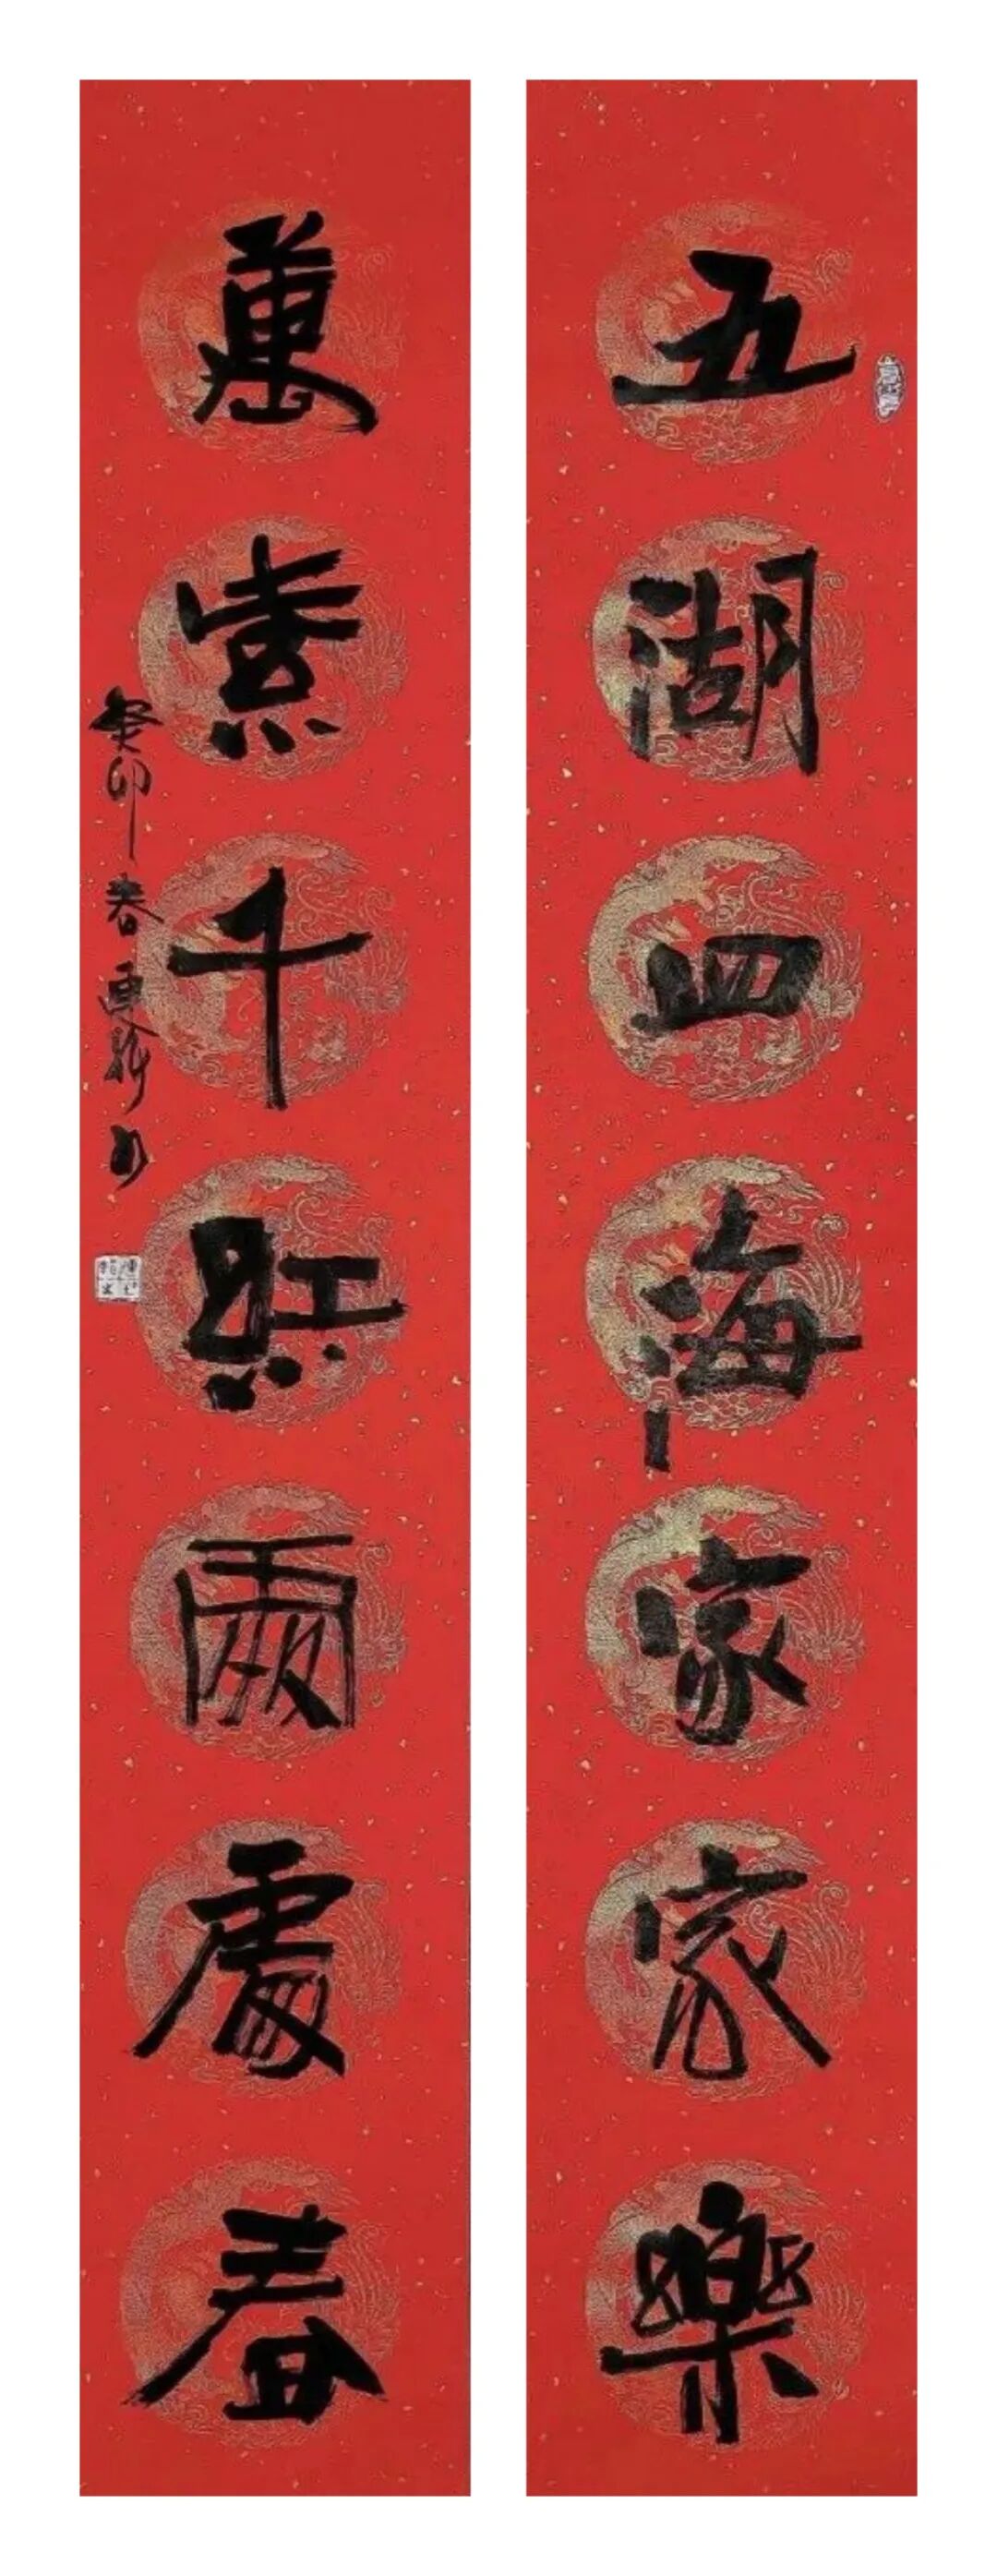 五湖四海家家樂
萬紫千紅兩處春
癸卯春